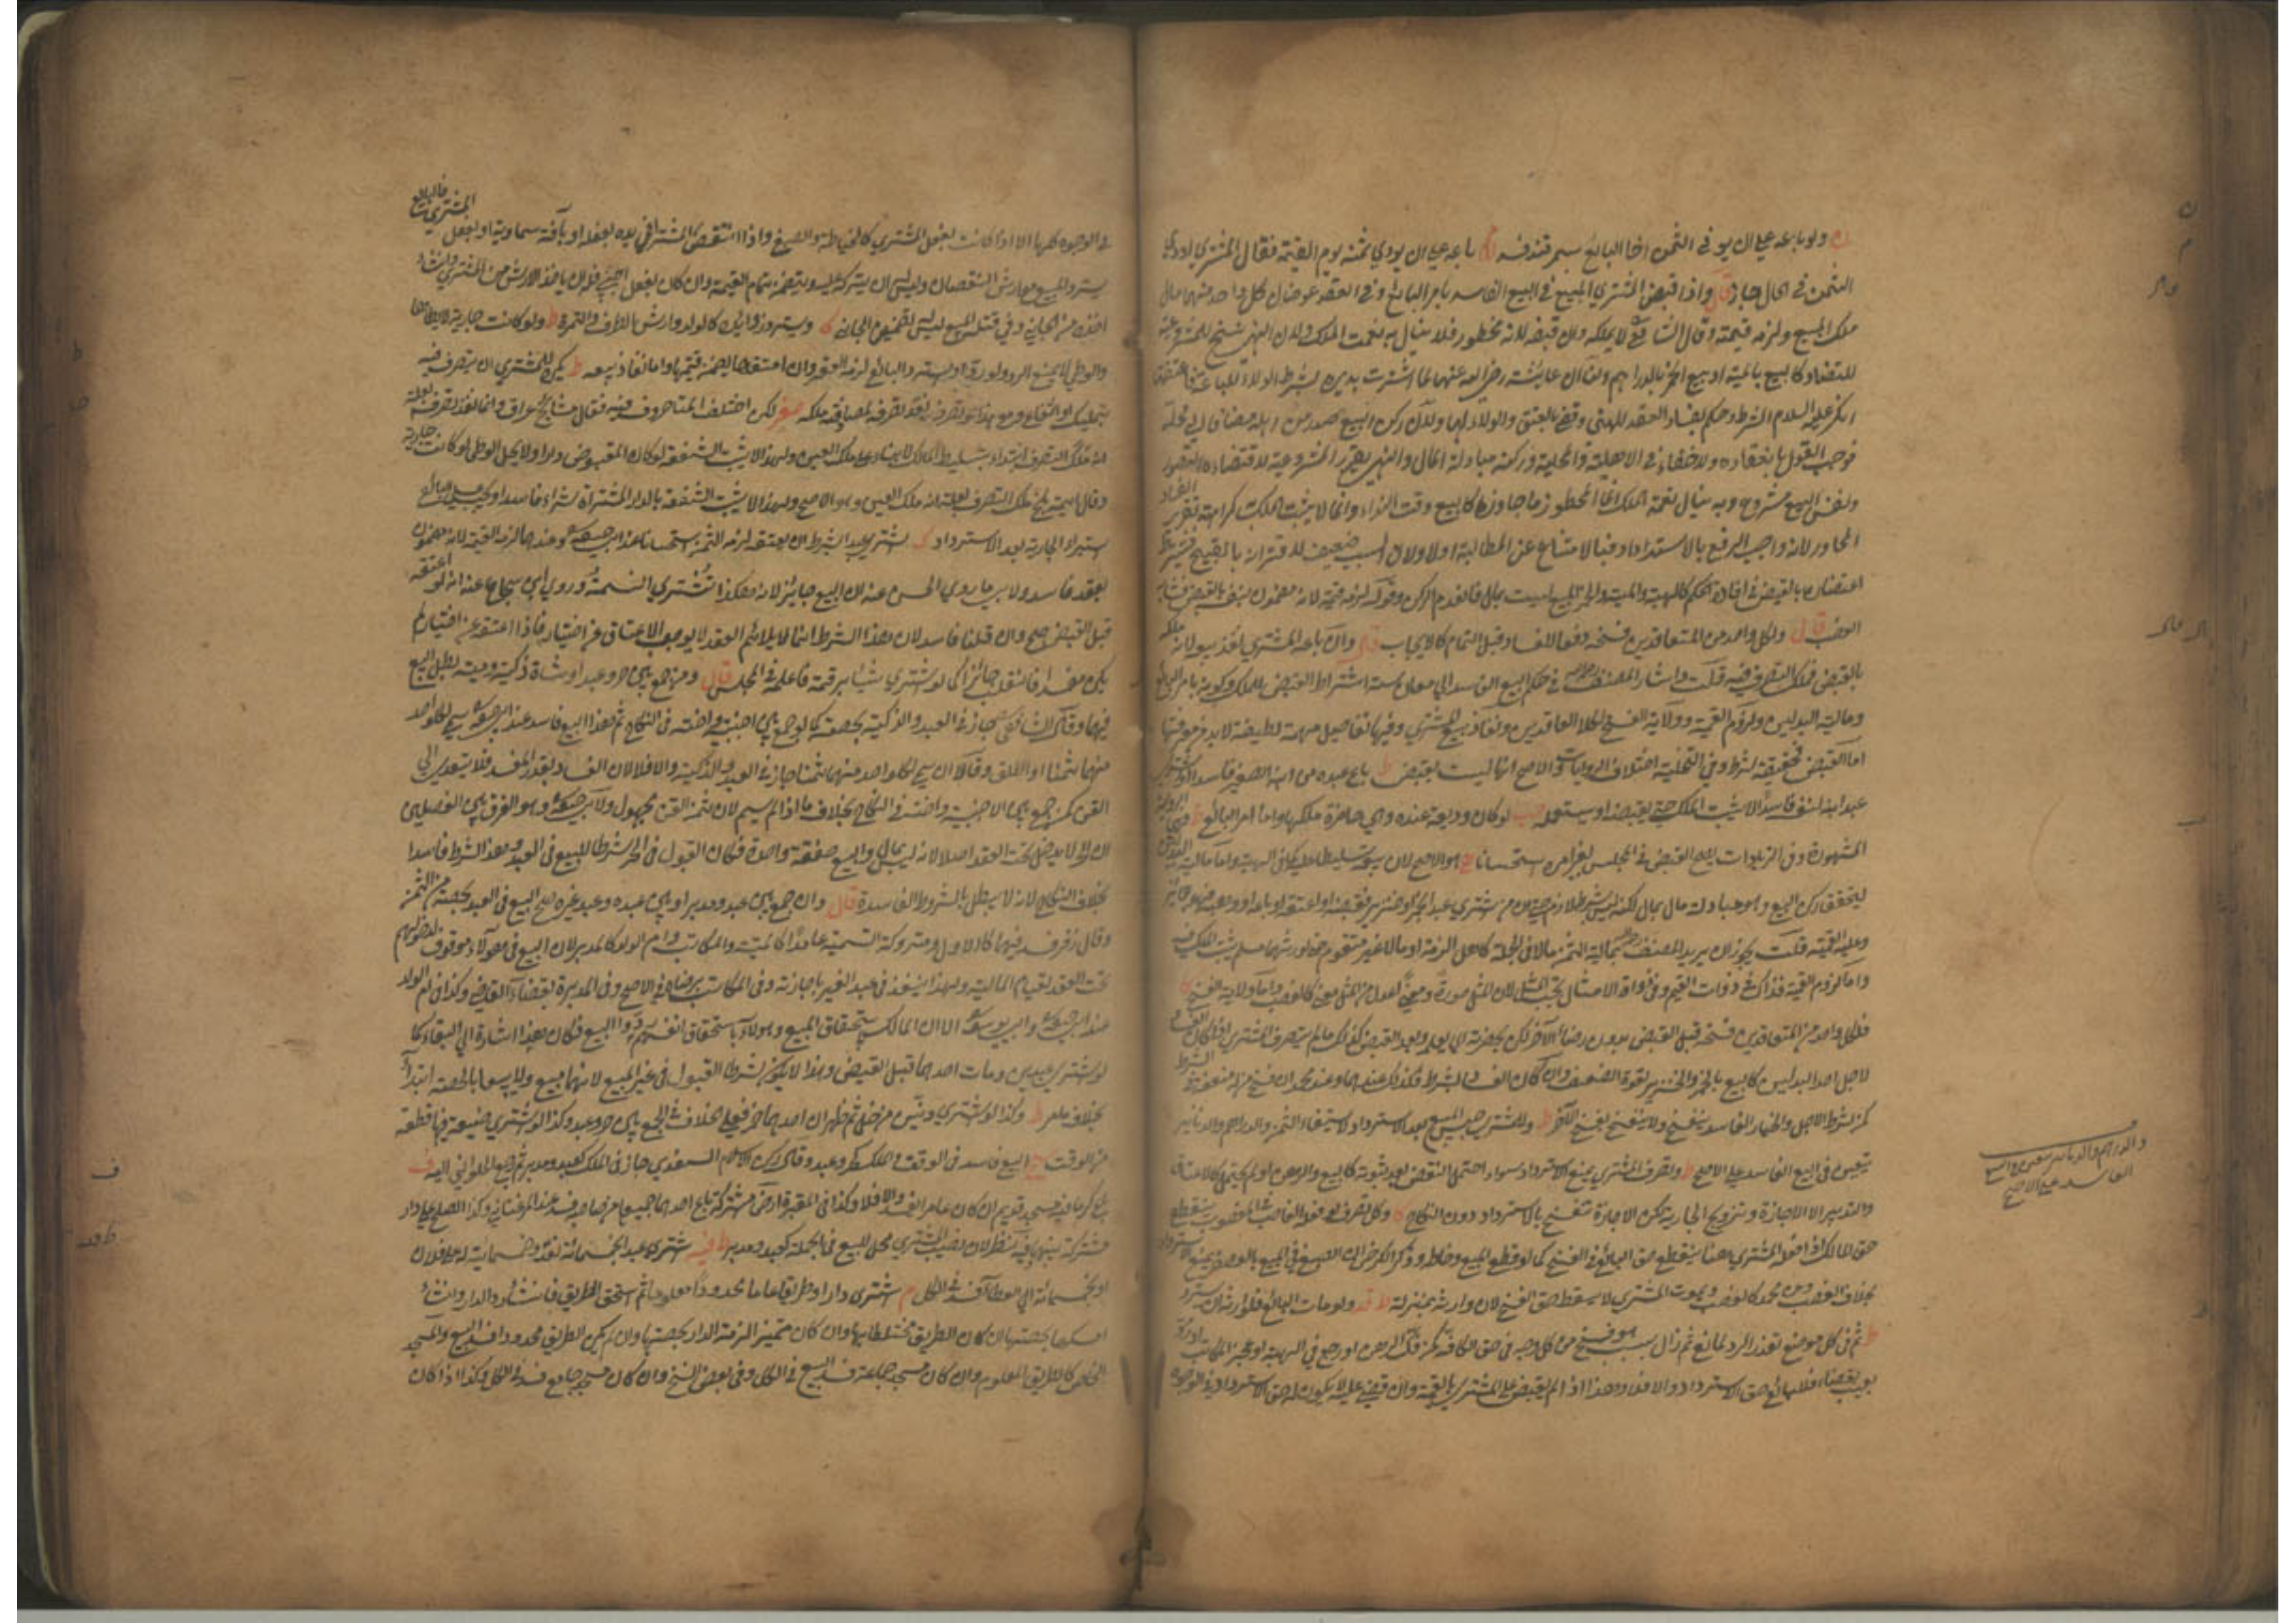 ولو باعه على ان يوفي الثمن اخا البائع بسمرقند فسد باعه على ان يودي ثمنه يوم القيمة فقال المشتري اودي
الثمن في الحال جاز قال واذا قبض المشتري المبيع في البيع الفاسد بامر البائع وفي العقد عوضان كل واحد منهما مال
ملك المبيع ولزمه قيمته وقال الشافعي لا يملكه وان قبضه لانه محظور فلا ينال به نعمت الملك ولان النهي نسخ للمشروعية
للتضاد كالبيع بالميتة او بيع الخمر بالدراهم ولنا ان عايشة رضي الله عنها لما اشترت بريرة بشرط الولاء
انكر عليه السلام الشرط وحكم بفساد العقد للنهي وقضى بالعتق والولاء لها ولان ركن البيع صدر من اهله مضافا الى محله
فوجب القول بانعقاده ولا خفاء في الاهلية والمحلية وركنه مبادلة المال والنهي يقرر المشروعية لاقتضاءه التصور
ونفس البيع مشروع وبه ينال نعمة الملك انما المحظور ما جاوزها كالبيع وقت النداء وانما لا يثبت الملك كراهة تقرير الفساد
المجاور لانه واجب الرفع بالاسترداد فبالامتناع عن المطالبة اولى ولان السبب ضعيف لاقترانه بالقبيح فيشترط
اعتضاده بالقبض في افادة الحكم كالهبة والميتة ليست بمال فانعدم الركن وقوله لزمه قيمته لانه مضمون بنفسه بالقبض فشابه
الغصب قال ولكل واحد من المتعاقدين فسخه دفعا للفساد وقبل التمام كالايجاب قال وان باعه المشتري نفذ بيعه لانه ملكه
بالقبض فملك التصرف فيه قلت واشار المصنف في حكم البيع الفاسد الى معان ستة اشتراط القبض للملك وكونه بامر البائع
ومالية البدلين ولزوم القيمة وولاية الفسخ لكلا العاقدين ونفاذ بيع المشتري وفيها تفاصيل مهمة لطيفة لابد من معرفتها
اما القبض فحقيقته شرط وفي التخلية اختلاف الروايات والاصح انها ليست بقبض ط باع عبده من ابنه الصغير فاسدا او اشترى
عبد ابنه لنفسه فاسدا لا يثبت الملك حتى يقبضه او يستعمله لو كان وديعة عنده وهي حاضرة ملكها واما امر البائع
المشهورة وفي الزيادات يصح القبض في المجلس بغير امره استحسانا هو الاصح لان بيعه تسليط عليه كما في الهبة واما مالية البدلين
ليتحقق ركن البيع وهو مبادلة مال بمال لكنه ليس بشرط لازم حتى ان من اشترى عبدا بخمر او خنزير فقبضه او اعتقه او باعه او وهبه فهو جائز
وعليه القيمة قلت يجوز ان يريد المصنف بمالية الثمن مالا في الجملة كاهل الذمة او مالا غير متقوم
واما لزوم القيمة فذاك في ذوات القيم وفي ذوات الامثال يجب المثل لان المثل صورة ومعنى اعدل من المثل معنى كالغصب واما ولاية الفسخ
فلكل واحد من المتعاقدين فسخه قبل القبض بدون رضا الآخر لكن بحضرته وبعد القبض كذلك ما لم يتصرف المشتري اذا كان الفساد
لاجل احد البدلين كالبيع بالخمر والخنزير لقوة الضعف وان كان الفساد بالشرط فكذلك عندهما وعند محمد ان فسخ من له منفعة الشرط
كمن شرط الاجل والخيار الفاسد ينفسخ ولا ينفسخ بفسخ الآخر ط وللمشتري حبس المبيع بعد الاسترداد لاستيفاء الثمن والدراهم والدنانير
يتعين في البيع الفاسد على الاصح ط وتصرف المشتري يمنع الاسترداد سواء احتمل النقض بعد ثبوته كالبيع والرهن او لم يحتمل كالاعتاق
والتدبير الا الاجارة وتزويج الجارية لكن الاجارة تنفسخ بالاسترداد دون النكاح وكل تصرف لو فعله الغاصب في المغصوب ينقطع
حق المالك اذا فعله المشتري هنا ينقطع حق البائع في الفسخ كما لو قطع المبيع وخاطه وذكر الكرخي ان الصبغ في المبيع بالعصفر يمنع الاسترداد
بخلاف الغصب وعن محمد كالغصب وبموت المشتري لا يسقط حق الفسخ لان وارثه بمنزلته ولو مات البائع فلوارثه ان يسترد
ثم في كل موضع تعذر الرد لمانع ثم زال بسبب هو فسخ من كل وجه في حق الكافة كمن فك الرهن او رجع في الهبة او عجز المكاتب او رد
بعيب بقضاء فللبائع حق الاسترداد والا فلا وهذا اذا لم يقض على المشتري بالقيمة وان قضي عليه لا يكون له حق الاسترداد في الوجوه
والدراهم والدنانير يتعين في البيع
الفاسد على الاصح
في الوجوه كلها الا اذا كانت بفعل المشتري كالخياطة والصبغ واذا انتقص المشترى في يده بفعله او بآفة سماوية او بفعل
يسترد المبيع مع ارش النقصان وليس ان يتركه عليه ويضمنه تمام القيمة وان كان بفعل اجنبي فله ان ياخذ الارش من المشتري وان شاء
اخذه من الجاني وفي قتل المبيع ليس له تضمين الجاني ويسترد زوائده كالولد وارش الطرف والثمرة ط ولو كانت جارية
والوطي لا يمنع الرد ولو زوجها استرد البائع لزمه العقر وان اعتقها يضمن قيمتها واما نفاذ بيعه ط يكره للمشتري ان يتصرف فيه
بتمليك او انتفاع ومع هذا لو تصرف نفذ تصرفه لمصادفته ملكه لكن اختلف المتاخرون فيه فقال مشايخ عراق وانما نفذ تصرفه
انه ملك التصرف ابتداء بتسليط المالك لا بناء على ملك العين ولهذا لا يثبت الشفعة لو كان المقبوض دارا ولا يحل الوطي لو كانت جارية
وقال ائمة بلخ ملك التصرف بعلة انه ملك العين وهو الاصح ولهذا لا يثبت الشفعة بالدار المشتراة شراء فاسدا
استبراء الجارية بعد الاسترداد اشترى عبدا بشرط ان يعتقه لزمه الثمن استحسانا عند ابي حنيفة وعندهما لزمه القيمة لانه مضمون
بعقد فاسد ولابي ما روي الحسن عنه ان البيع جائز لانه هكذا تشترى النسمة وروي ابن شجاع عنه انه لو اعتقه
قبل القبض صح وان قلنا فاسد لان هذا الشرط انما لا يلائم العقد لا يوجب الاعتاق عن اختياره فاذا اعتقه عن اختياره لم
يكن مفسدا فانقلب جائزا كما لو اشترى شيئا برقمه فاعلمه في المجلس قال ومن جمع بين حر وعبد او شاة ذكية وميتة بطل البيع
فيهما وقال الشافعي جاز في العبد والذكية بحصته كما لو جمع بين اجنبية واخته في النكاح ثم هذا البيع فاسد عند ابي حنيفة سمى لكل واحد
منهما ثمنا او اطلق وقالا ان سمى لكل واحد منهما ثمنا جاز في العبد والذكية والا فلا لان الفساد بقدر المفسد فلا يتعدى الى
القن كمن جمع بين الاجنبية واخته في النكاح بخلاف ما اذا لم يسم لان ثمن القن مجهول ولابي حنيفة وهو الفرق بين الفصلين
ان الحر لا يدخل تحت العقد اصلا لانه ليس بمال والبيع صفقة واحدة فكان القبول في الحر شرطا للبيع في العبد وهذا الشرط فاسد
بخلاف النكاح لانه لا يبطل بالشروط الفاسدة قال وان جمع بين عبد ومدبر او بين عبده وعبد غيره صح البيع في العبد بحصته من الثمن
وقال زفر فسد فيهما كالاول ومتروكة التسمية عامدا كالميتة والمكاتب وام الولد كالمدبر لان البيع في هؤلاء موقوف لدخولهم
تحت العقد لقيام المالية ولهذا ينفذ في عبد الغير باجازته وفي المكاتب برضاه في الاصح وفي المدبر بقضاء القاضي وكذا في ام الولد
عند ابي حنيفة وابي يوسف الا ان المالك باستحقاق المبيع وهولاء باستحقاق انفسهم ردوا البيع فكان هذا اشارة الى البقاء كما
لو اشترى عبدين ومات احدهما قبل القبض وهذا لا يكون شرطا القبول في غير المبيع لانهما مبيع ولا بيعا بالحصة ابتداء
بخلاف ما مر ط وكذا لو اشترى دنين من خل ثم ظهر ان احدهما خمر فعلى الخلاف في الجمع بين حر وعبد وكذا لو اشترى ضيعة فيها قطعة
من الوقف البيع فاسد في الوقف والملك كحر وعبد وقال ركن الاسلام السغدي جاز في الملك كعبد ومدبر ثم رجع الحلواني اليه ف
باع كرما فيه مسجد قديم ان كان عامرا يفسد والا فلا وكذا في المقبرة ارض مشتركة باع احدهما جميعها من صاحبه فسد وكذا الصلح على دار
مشتركة بينهما فيه نظر لان نصيب المشتري محل للبيع في الجملة كعبد ومدبر اشترى عبدا بخمسمائة نقد وخمسمائة له على فلان
او بخمسمائة الى العطاء فسد في الكل م اشترى دارا وطريقا عاما محدودا معلوما ثم استحق الطريق فان شاء رد الدار وان شاء
امسكها بحصتها ان كان الطريق مختلطا بها وان كان متميزا لزمه الدار بحصتها وان لم يكن الطريق محدودا فسد البيع والمسجد
الخاص كالطريق المعلوم وان كان مسجد جماعة فسد البيع في الكل وفي بعض النسخ وان كان مسجد جامع فسد في الكل وكذا اذا كان